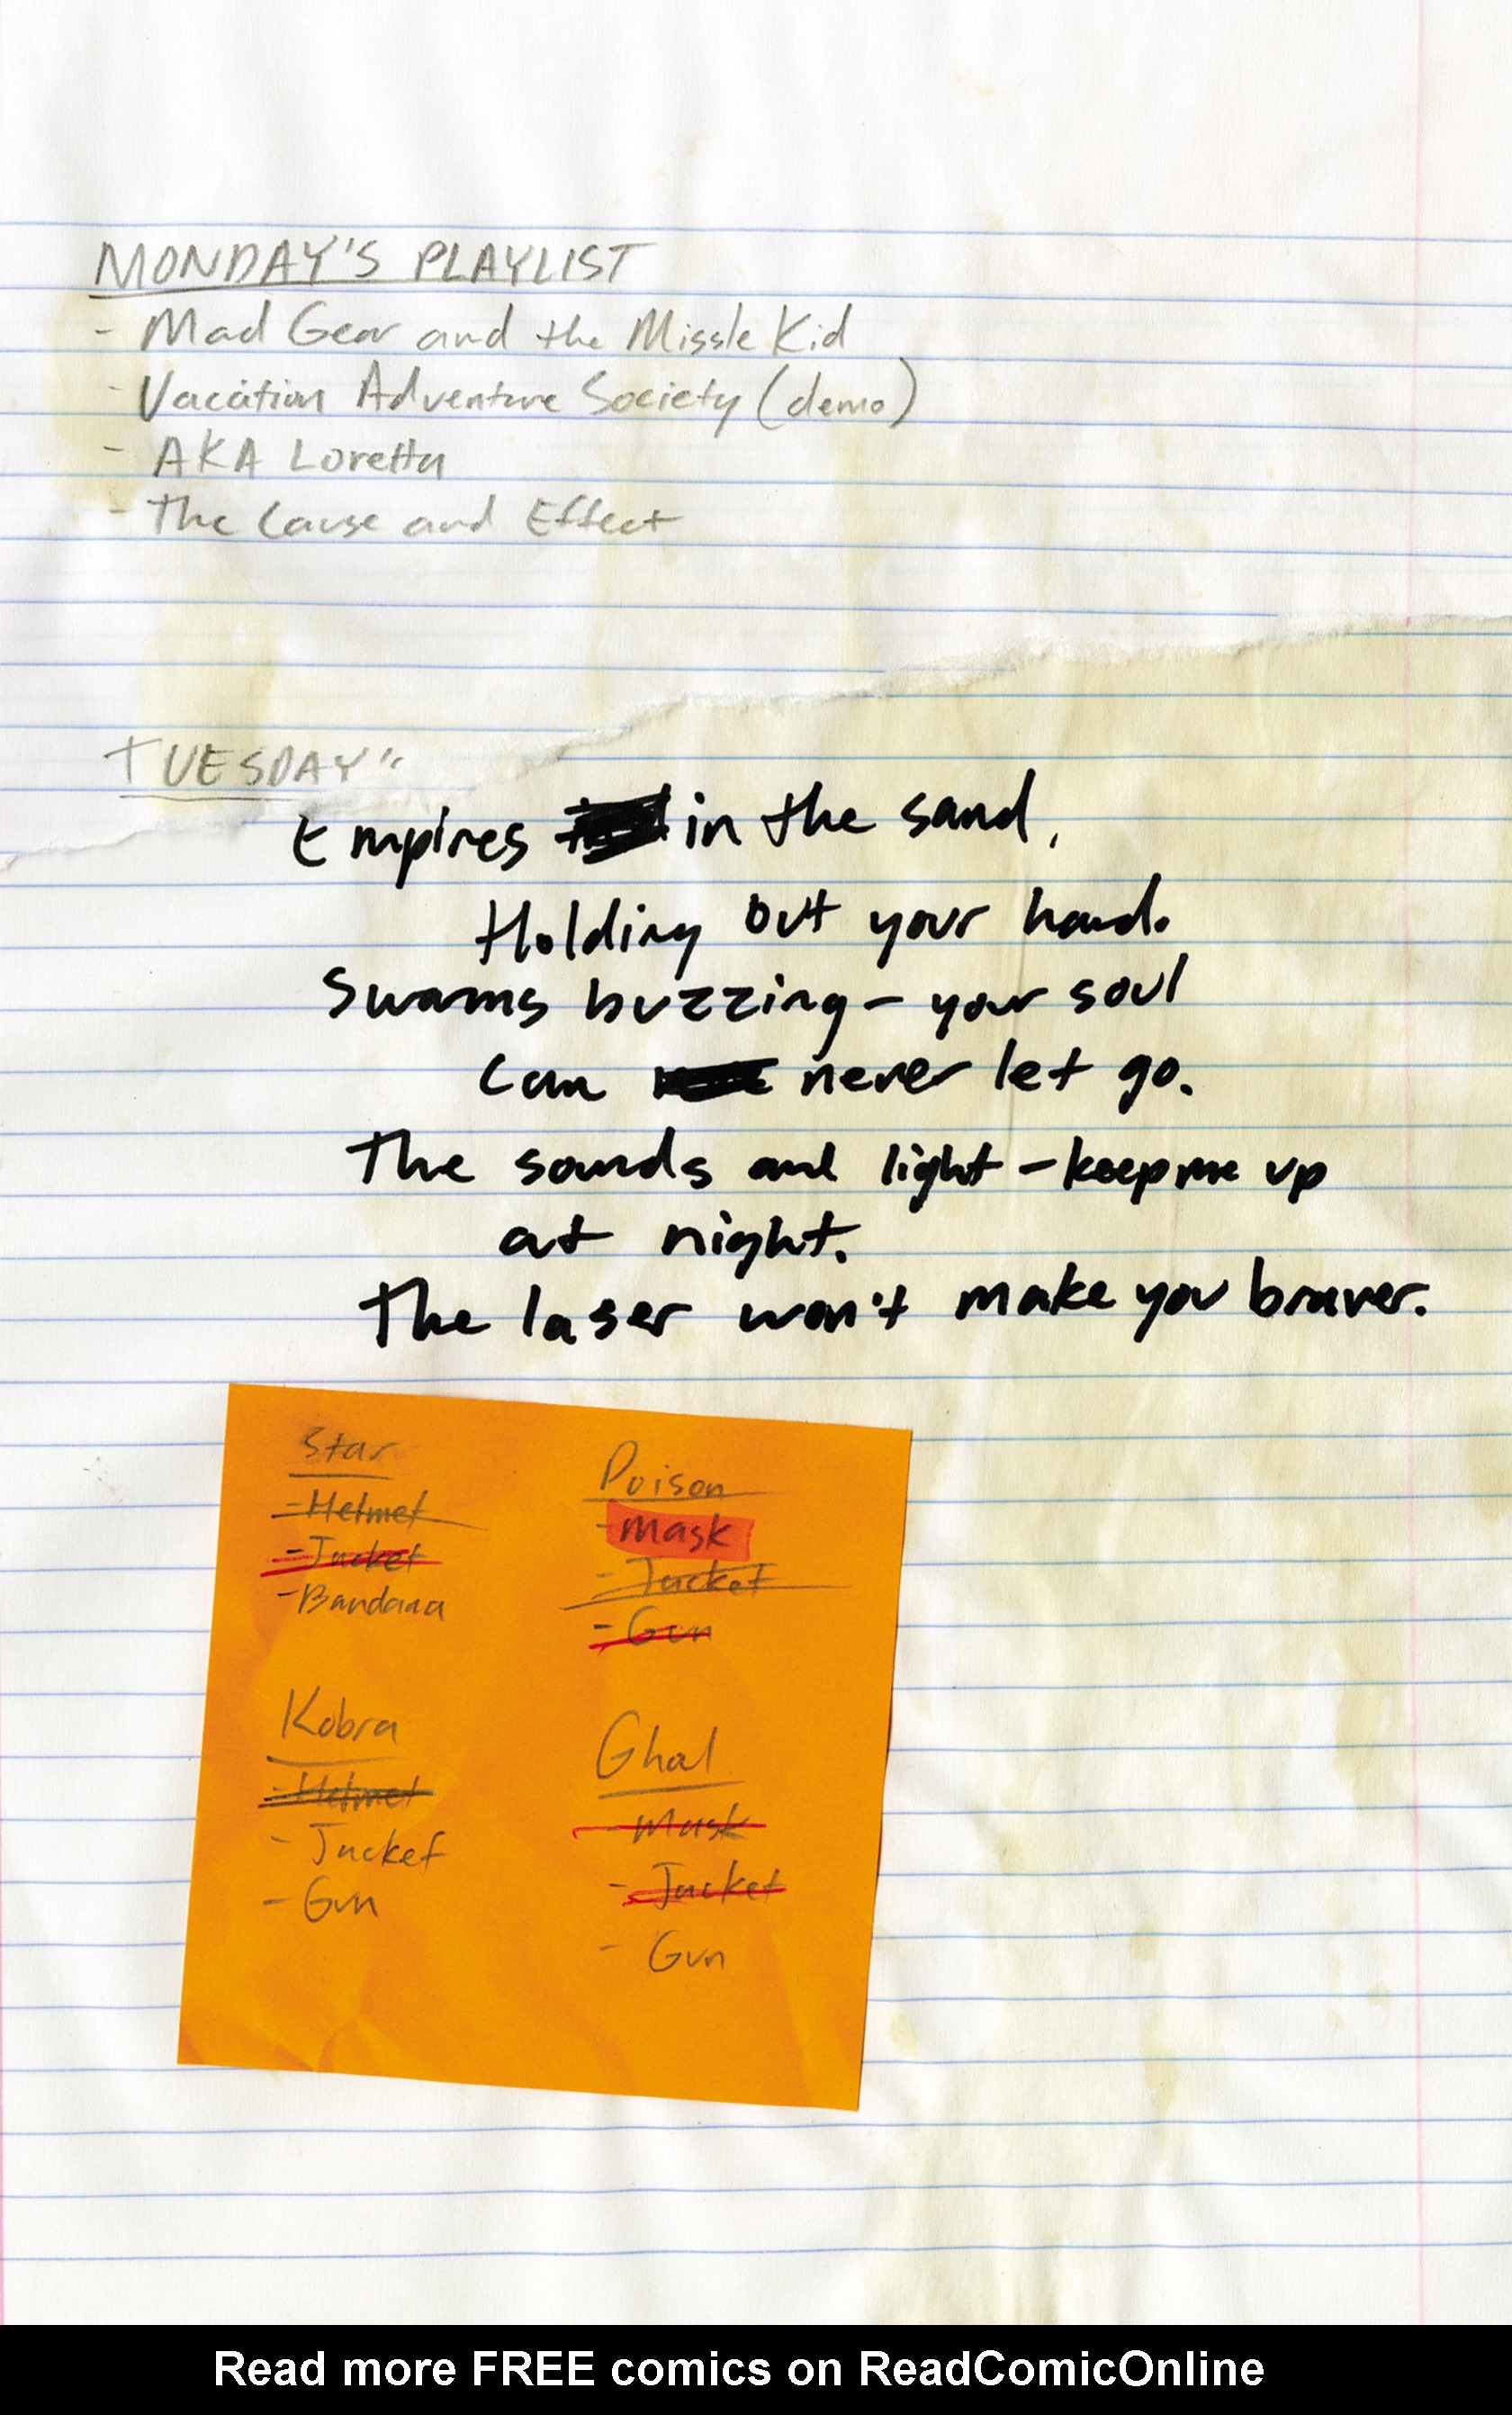 MONDAY'S PLAYLIST
- Mad Gear and the Missle Kid
- Vacation Adventure Society (demo)
- AKA Loretta
- The Cause and Effect
TUESDAY"
Empires in the sand,
Holding out your hand.
Swarms buzzing - your soul
can never let go.
The sounds and light - keep me up
at night.
The laser won't make you braver.
Star
- Helmet
- Jacket
- Bandana
Poison
- Mask
- Jacket
- Gun
Kobra
- Helmet
- Jacket
- Gun
Ghoul
- Mask
- Jacket
- Gun
Read more FREE comics on ReadComicOnline